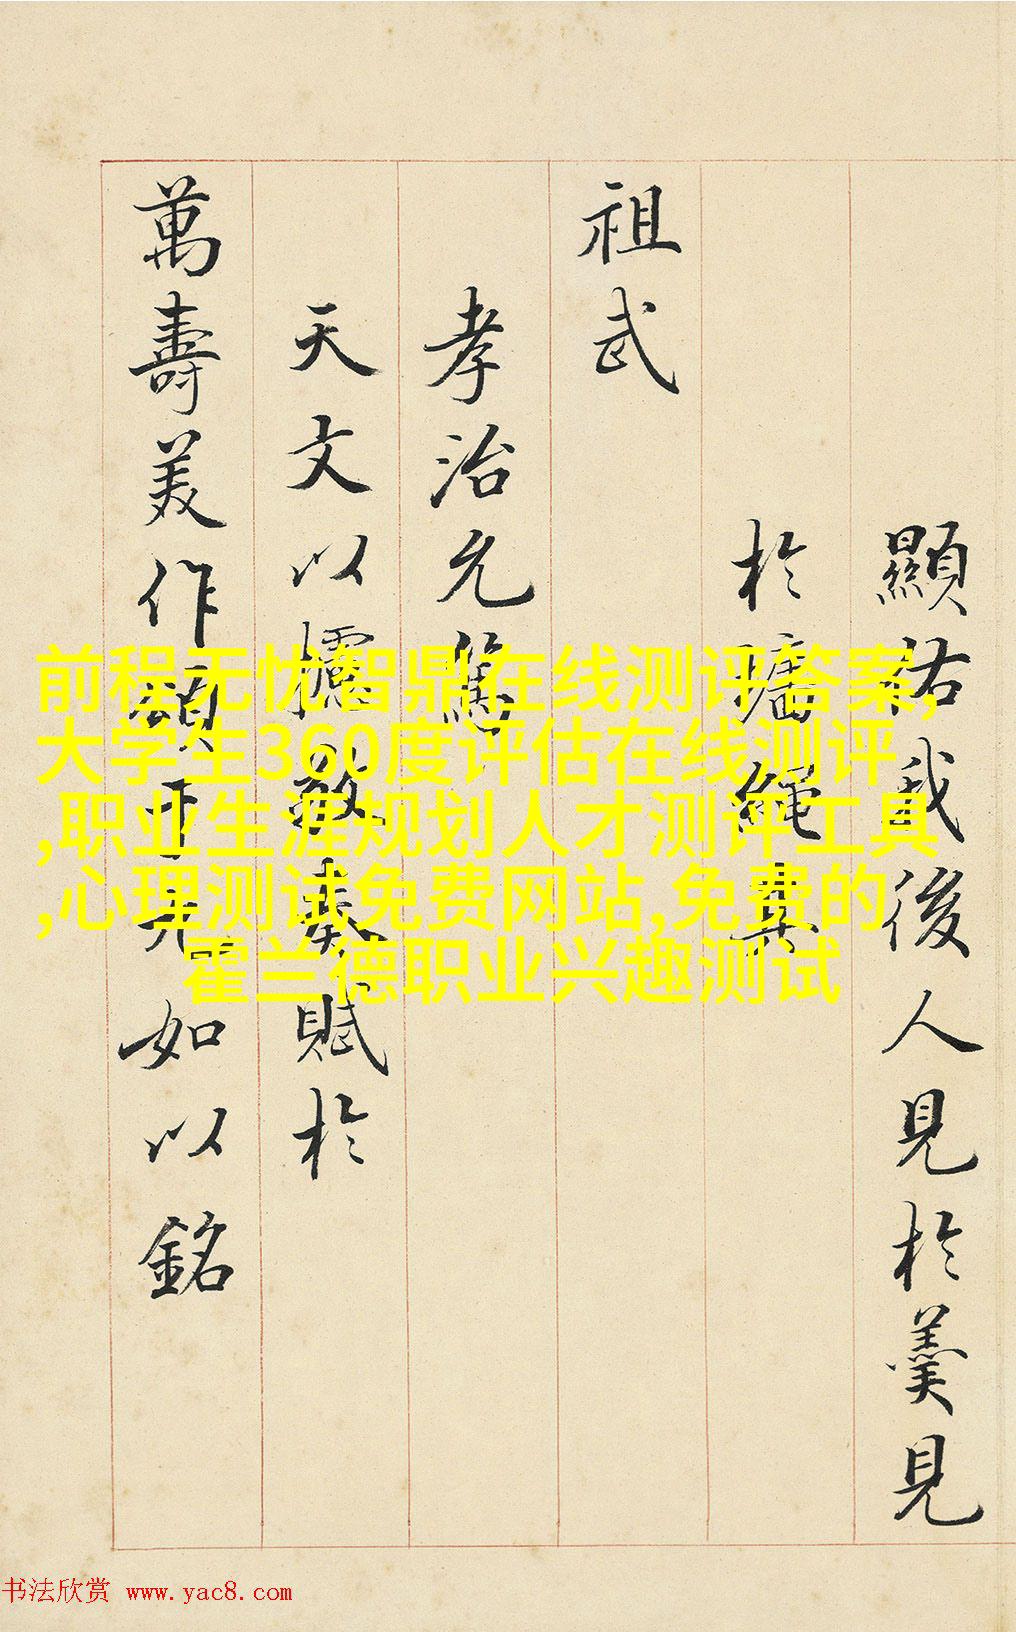 顯祐我後人見於羹見
於墻繩其
祖武
孝治允
天文以攄敬奏賦於
萬壽美作頌

如以銘
前程无忧智鼎在线测评答案,
大学生360度评估在线测评
,职业生涯规划人才测评工具
,心理测试免费网站,免费的
霍兰德职业兴趣测试
书法欣赏 www.yac8.com